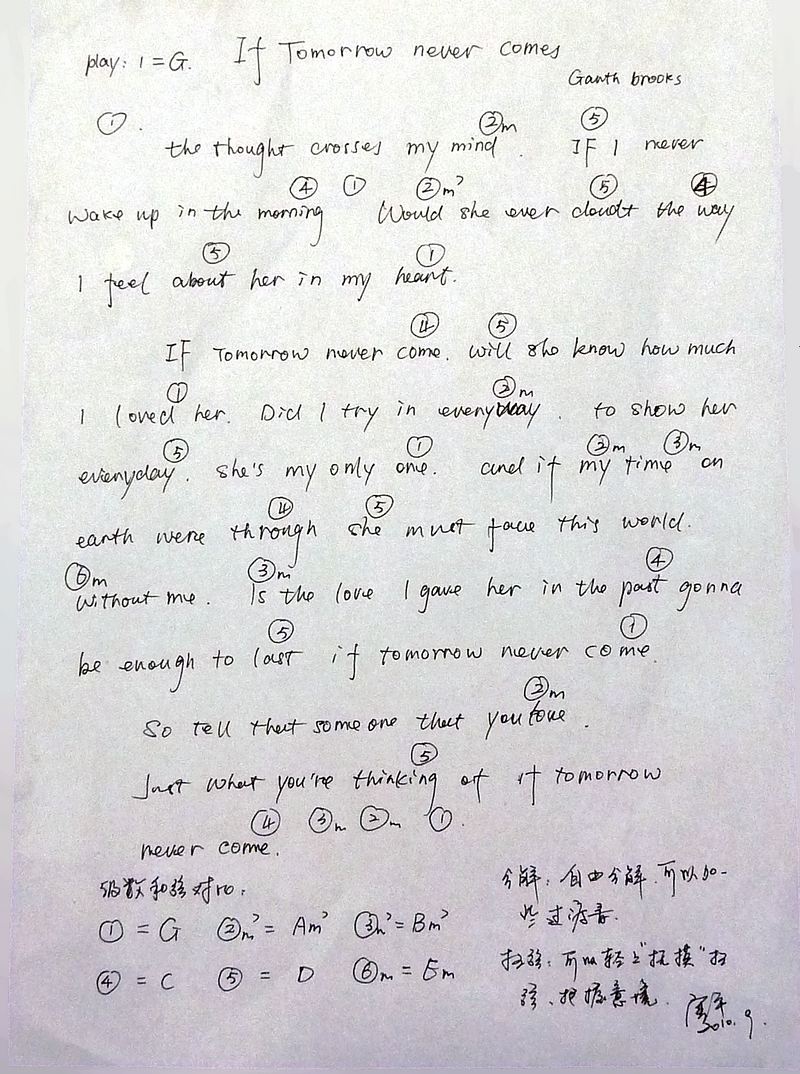 play: 1 = G. If Tomorrow never comes
Ganth brooks
① .
②m ⑤
the thought crosses my mind . IF I never
④ ① ②m⁷ ⑤ ④
wake up in the morning Would she ever doubt the way
⑤ ①
I feel about her in my heart.
④ ⑤
IF Tomorrow never come. will she know how much
① ②m
I loved her. Did I try in everyway . to show her
⑤ ① ②m ③m
everyday. she's my only one. and if my time on
④ ⑤
earth were through she must face this world.
⑥m ③m ④
without me. Is the love I gave her in the past gonna
⑤ ①
be enough to last if tomorrow never come.
②m
So tell that someone that you love .
⑤
Just what you're thinking of if tomorrow
④ ③m ②m ① .
never come.
级数和弦对应:
① = G ②m⁷ = Am⁷ ③m⁷ = Bm⁷
④ = C ⑤ = D ⑥m = Em
分解: 自由分解.可以加一
些过渡音.
扫弦: 可以轻上"抚摸"扫
弦、把握意境.
2010.9.